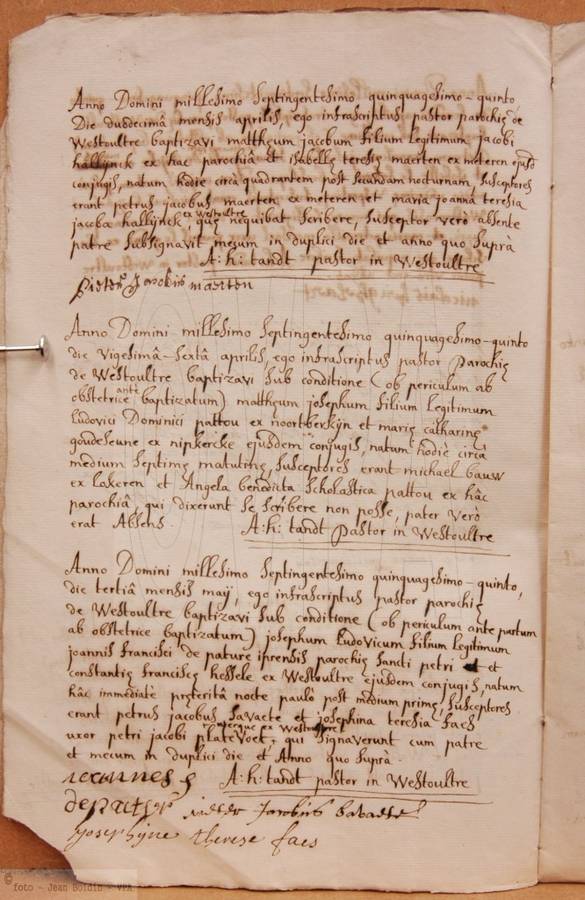 Anno Domini millesimo septingentesimo quinquagesimo-quinto
Die duodecimâ mensis aprilis, ego infrascriptus pastor parochię de
Westoultre baptizavi matthęum jacobum filium legitimum jacobi
hallijnck ex hac parochiâ et isabellę teresię maerten ex meteren ejusd
conjugis, natum hodie circa quadrantem post secundam nocturnam, susceptores
erant petrus jacobus maerten ex meteren et maria joanna teresia
ex westoultre
jacoba hallijnck, quę nequibat scribere, susceptor verò absente
patre subsignavit mecum in duplici die et anno quo suprà
A: h: tandt pastor in Westoultre
pieter Jacobus maerten
Anno Domini millesimo septingentesimo quinquagesimo-quinto
die vigesimâ-sextâ aprilis, ego infrascriptus pastor parochię
de Westoultre baptizavi sub conditione (ob periculum ab
antè
obstetrice baptizatum) matthęum josephum filium legitimum
ludovici Dominici pattou ex noortberkijn et marię catharinę
goudeseune ex nipkercke ejusdem conjugis, natum hodiè circâ
medium septimę matutinę, susceptores erant michael bauw
ex lokeren et Angela benedicta scholastica pattou ex hâc
parochiâ, qui dixerunt se scribere non posse, pater verò
erat Absens. A: h: tandt pastor in Westoultre
Anno Domini millesimo septingentesimo quinquagesimo-quinto,
die tertiâ mensis maij, ego infrascriptus pastor parochię
de Westoultre baptizavi sub conditione (ob periculum ante partum
ab obstetrice baptizatum) josephum ludovicum filium legitimum
joannis francisci de pature iprensis parochię sancti petri et
constantię franciscę hessele ex Westoultre ejusdem conjugis, natum
hâc immediatè pręteritâ nocte paulò post medium primę, susceptores
erant petrus jacobus savaete et josephina teresia faes
ex Westoultre
uxor petri jacobi platevoet, qui signaverunt cum patre
et mecum in duplici die et Anno quo suprà.
A: h: tandt pastor in Westoultre
ioannes
depatur pieter Jacobus
Josephijne therese faes
© foto - Jean Boldin - VPA